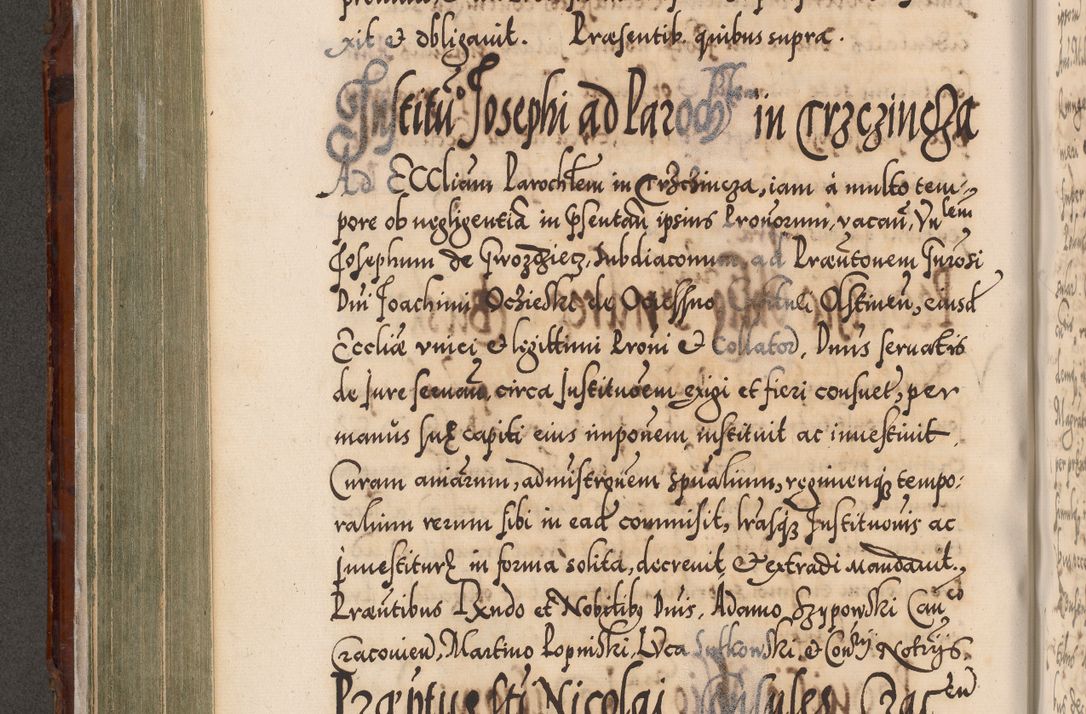 xit et obligavit. Præsentib. quibus supra.
Institũ Josephi ad Paroch in Trzczincza
Ad ECCliam Parochlem in Trzchincza, iam à multo tem-
pore ob negligentiã in p̃sentañ ipsius Pronorum, vacañ, Vnlem
Josephum de Grozdziecz, Subdiaconum, ad Præũtonem Gnrosi
Dni Joachimi Ochieski de Ociessyno Oswiecimen, eiusd
Eccliæ vnici et legittimi Proni et Collator, Dnus servatis
de Jure servañ, circa Institvõem exigi et fieri consuet, per
manus suæ capiti eius imponem, instituit ac inuestiuit.
Curam aniarum, admistronem spũalium, regimenq tempo-
ralium rerum sibi in ead commisit, lrasq Institvonis ac
Inuestituræ in forma solita, decreuit, et extradi mandauit.
Præũtibus Rxndo et Nobilib Dnis, Adamo Szypowski Cañco
Cracouien, Martino Lopniski, Lvca Sulkowski, et Conrij Notrijs.
Nicolai Crac en